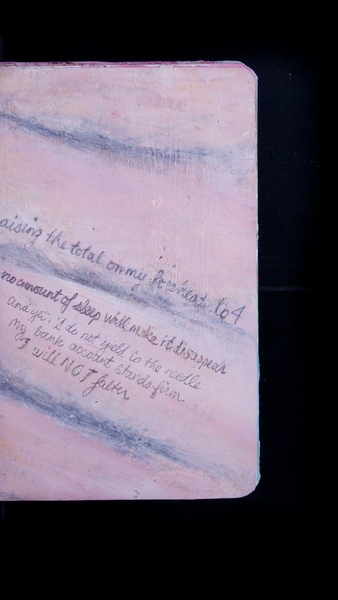 aising the total on my forehead to 4
no amount of sleep will make it disappear
and yet, I do not yeld to the needle
My bank account stands firm
I will NOT falter